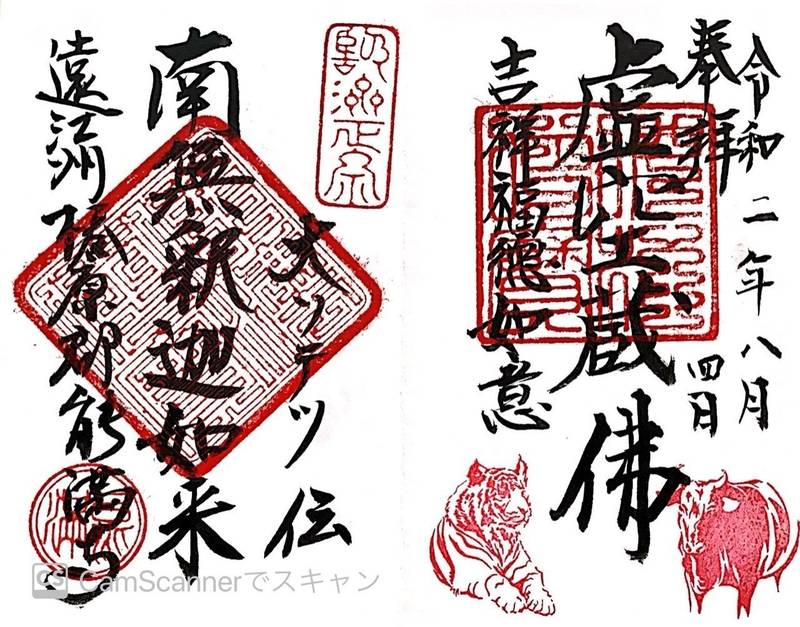 令和二年八月四日
奉拝
虚空蔵佛
吉祥福徳如意
大ソテツ伝
南無釈迦如来
遠江州榛原郡能満寺
CS CamScannerでスキャン